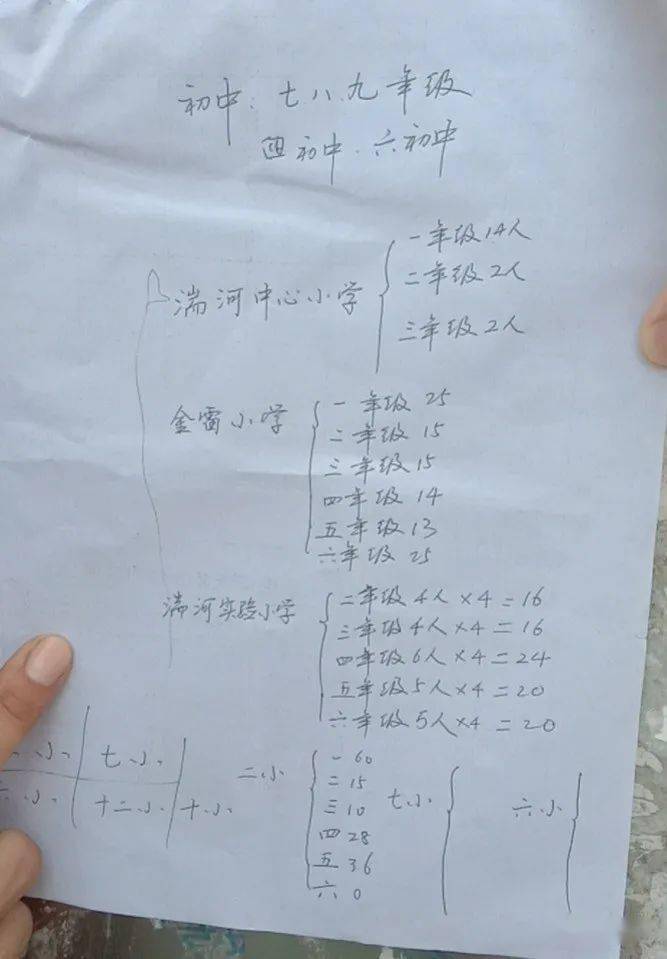 初中:七.八.九年级
四初中.六初中
湍河中心小学
一年级14人
二年级2人
三年级2人
金雷小学
一年级 25
二年级 15
三年级 15
四年级 14
五年级 13
六年级 25
湍河实验小学
二年级4人×4=16
三年级4人×4=16
四年级6人×4=24
五年级5人×4=20
六年级5人×4=20
小 七小
六小 十二小 十小
二小
一 60
二 15
三 10
四 28
五 36
六 0
七小
六小